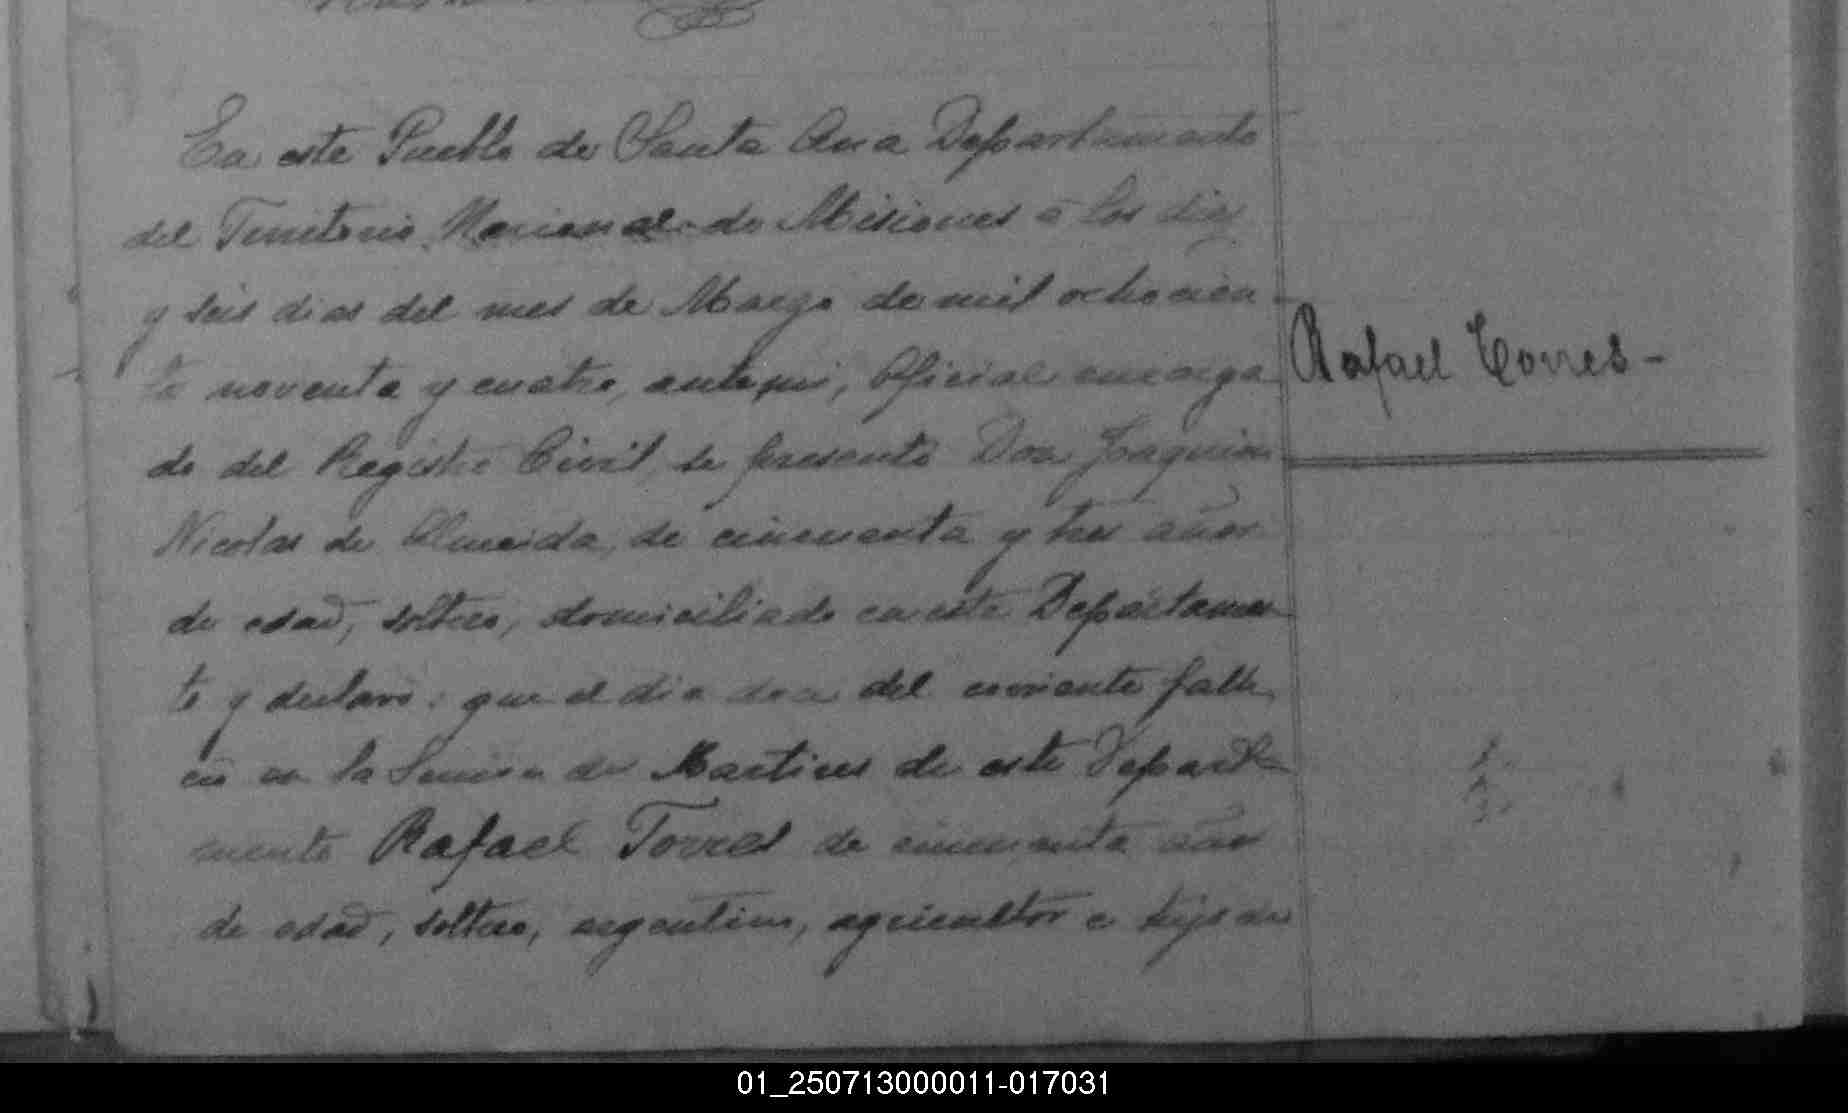 En este Pueblo de Santa Ana Departamento
del Territorio Nacional de Misiones á los diez
y seis dias del mes de Marzo de mil ochocien
to noventa y cuatro, ante mi, Oficial encarga
do del Registro Civil, se presentó Don Joaquin
Nicolas de Almeida, de cincuenta y tres años
de edad, soltero, domiciliado en este Departamen
to y declaró: que el dia doce del corriente falle
ció en la de Martires de este Departa
mento Rafael Torres de cincuenta años
de edad, soltero, argentino, agricultor é hijo de
Rafael Torres -
01_250713000011-017031